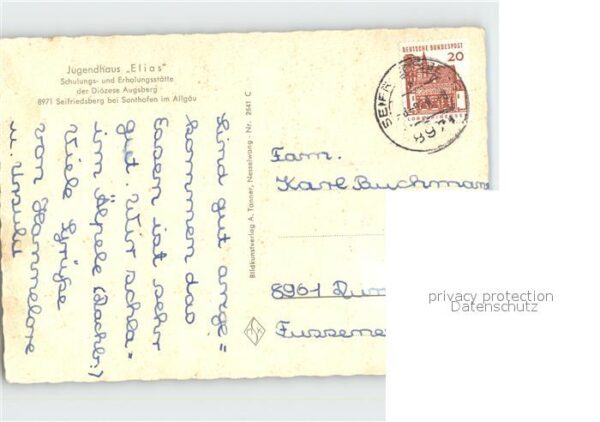 Jugendhaus „Elias"
Schulungs- und Erholungsstätte
der Diözese Augsberg
8971 Seifriedsberg bei Sonthofen im Allgäu
Sind gut ange=
kommen das
Essen ist sehr
gut. Wir schla=
im Älpele (Dachb.)
Viele Grüße
von Hannelore
u. Ursula
Bildkunstverlag A. Tanner, Nesselwang - Nr. 2641 C
DEUTSCHE BUNDESPOST
20
8971
Fam.
Karl Buchmann
8961
Fussene
privacy protection
Datenschutz